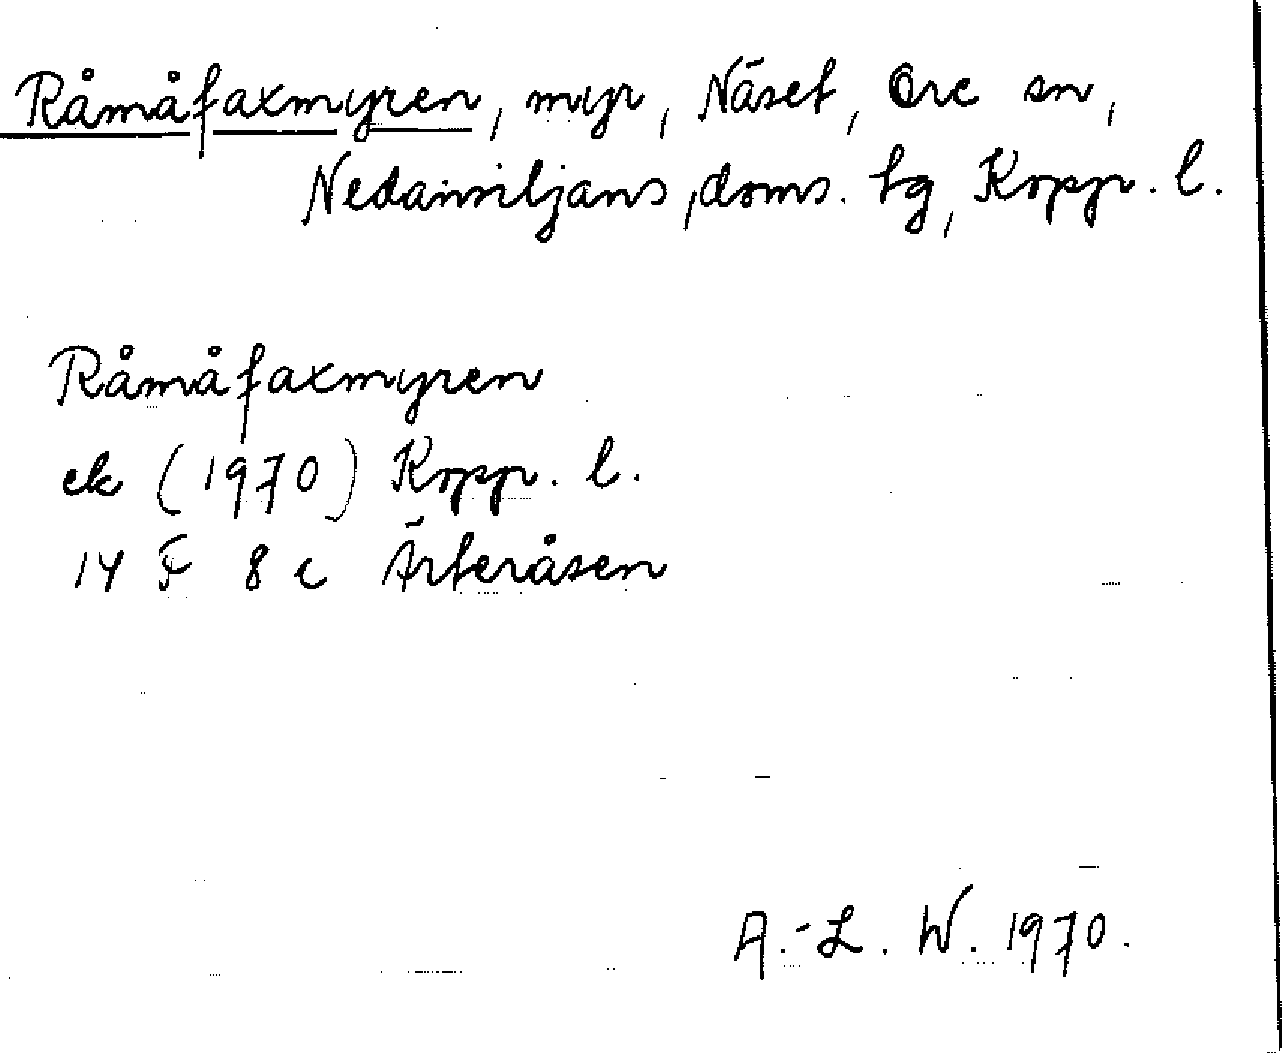 Råmåfaxmyren, myr, Näset, Ore sn,
Nedansiljans, doms. tg, Kopp. l.
Råmåfaxmyren
ek (1970) Kopp. l.
14 F 8 c Ärteråsen
A.-L. W. 1970.